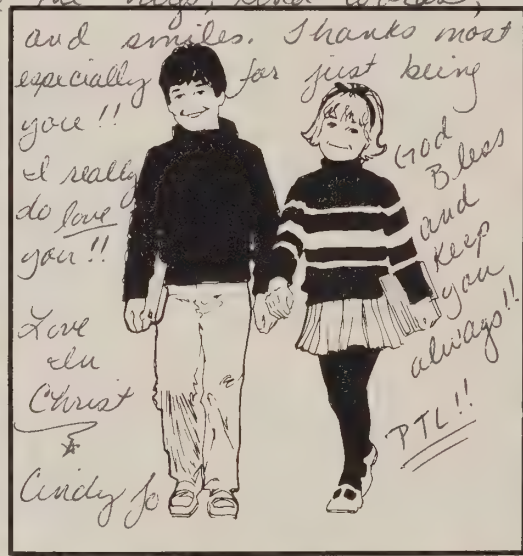 the hugs, kind words,
and smiles. Thanks most
especially for just being
you!!
I really
do love
you!!
Love
In
Christ
Cindy Jo
God
Bless
and
keep
you
always!!
PTL!!